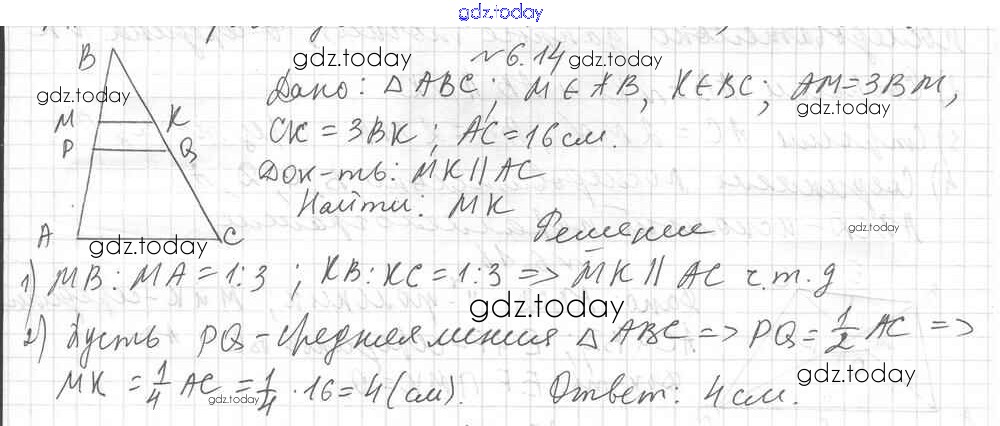 gdz.today
№6.14 gdz.today
gdz.today
Дано: △ABC; M∈AB, K∈BC; AM=3BM,
gdz.today
gdz.today
CK=3BK; AC=16см.
Док-ть: MK||AC
Найти: MK
Решение
gdz.today
B
M K
P Q
A C
gdz.today
1) MB:MA=1:3; KB:KC=1:3 => MK||AC ч.т.д
gdz.today
2) Пусть PQ-средняя линия △ABC => PQ=1/2 AC =>
MK=1/4 AC=1/4·16=4(см). Ответ: 4см.
gdz.today
gdz.today